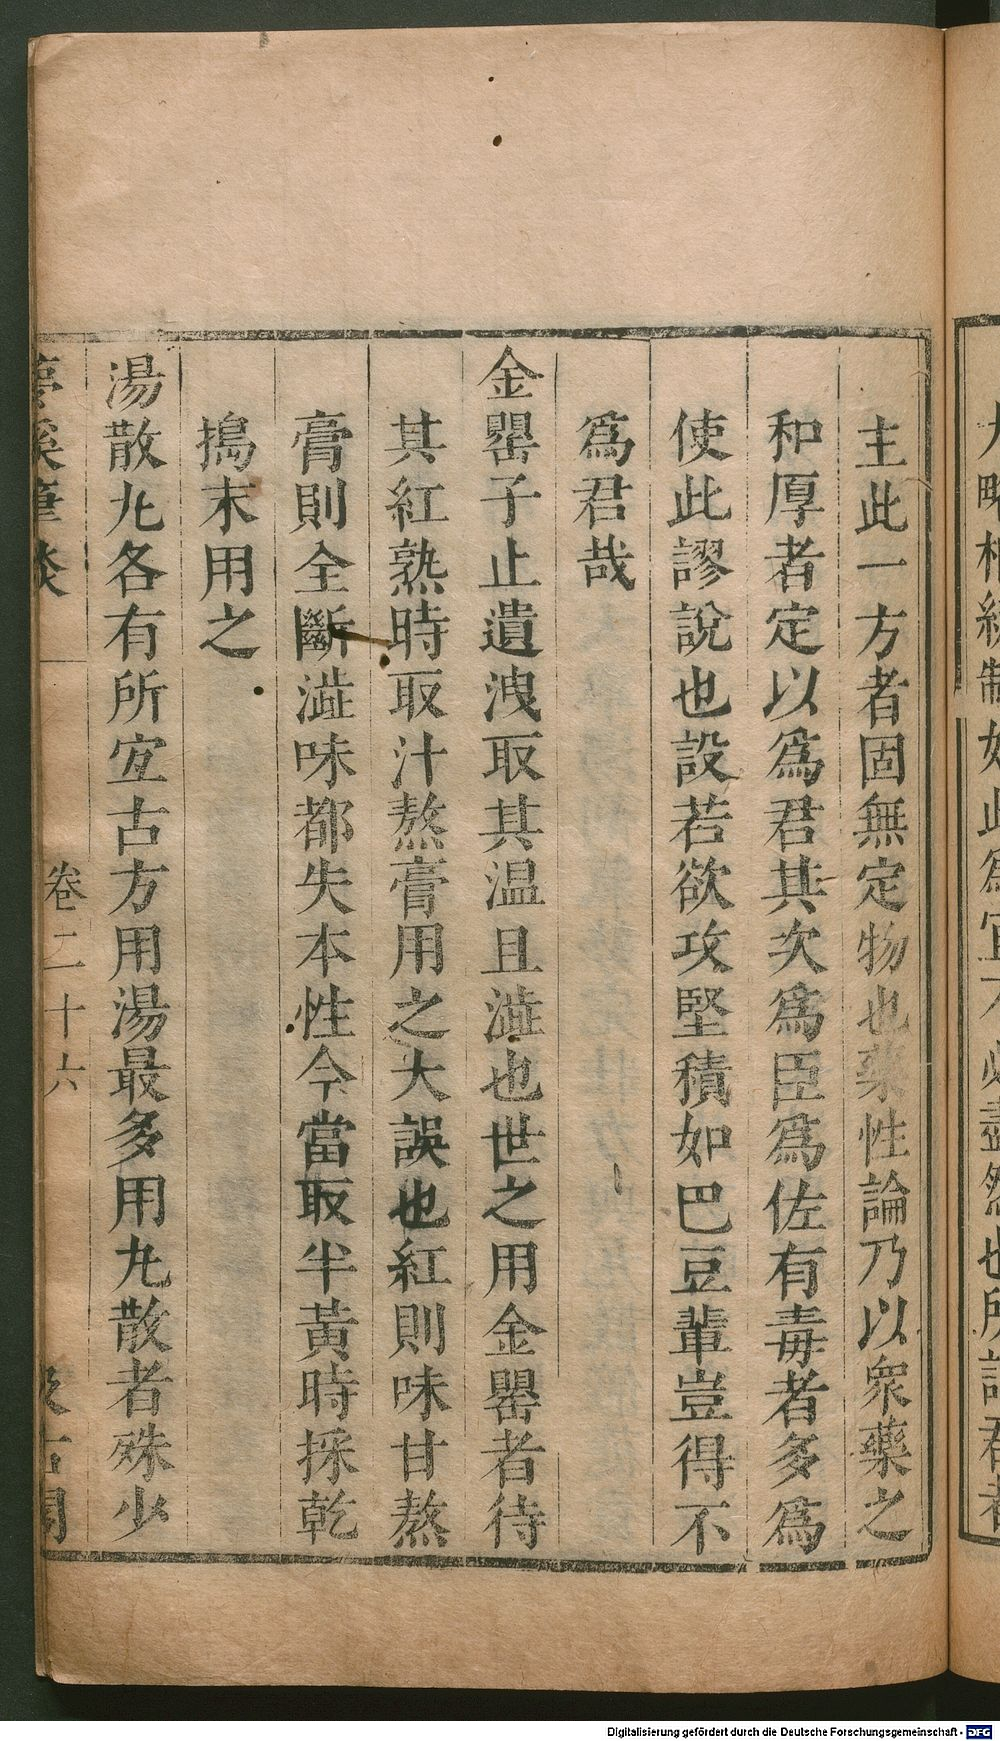 主此一方者固無定物也藥性論乃以衆藥之
和厚者定以爲君其次爲臣爲佐有毒者多爲
使此謬說也設若欲攻堅積如巴豆輩豈得不
爲君哉
金罌子止遺洩取其温且澁也世之用金罌者待
其紅熟時取汁熬膏用之大誤也紅則味甘熬
膏則全斷澁味都失本性今當取半黃時採乾
搗末用之
湯散丸各有所宜古方用湯最多用丸散者殊少
夢溪筆談 卷二十六 汲古閣
Digitalisierung gefördert durch die Deutsche Forschungsgemeinschaft - DFG